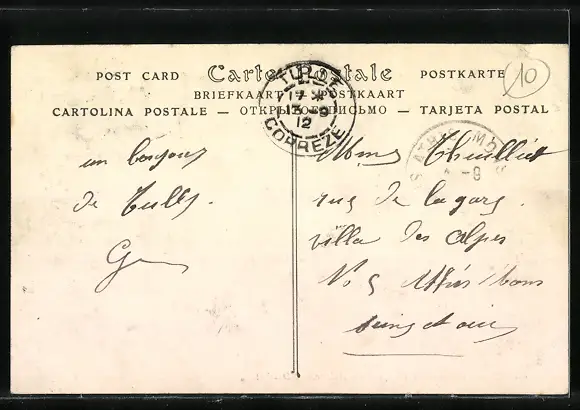 POST CARD Carte Postale POSTKARTE
BRIEFKAART POSTKAART
CARTOLINA POSTALE — ОТКРЫТОЕ ПИСЬМО — TARJETA POSTAL
10
TULLE
17 *
13 - 9
12
CORREZE
ATHIS-MONS
un bonjour
de Tulle.
Mme Thuillier
rue de la gare.
villa des Alpes
No 5 Athis Mons
Seine et Oise